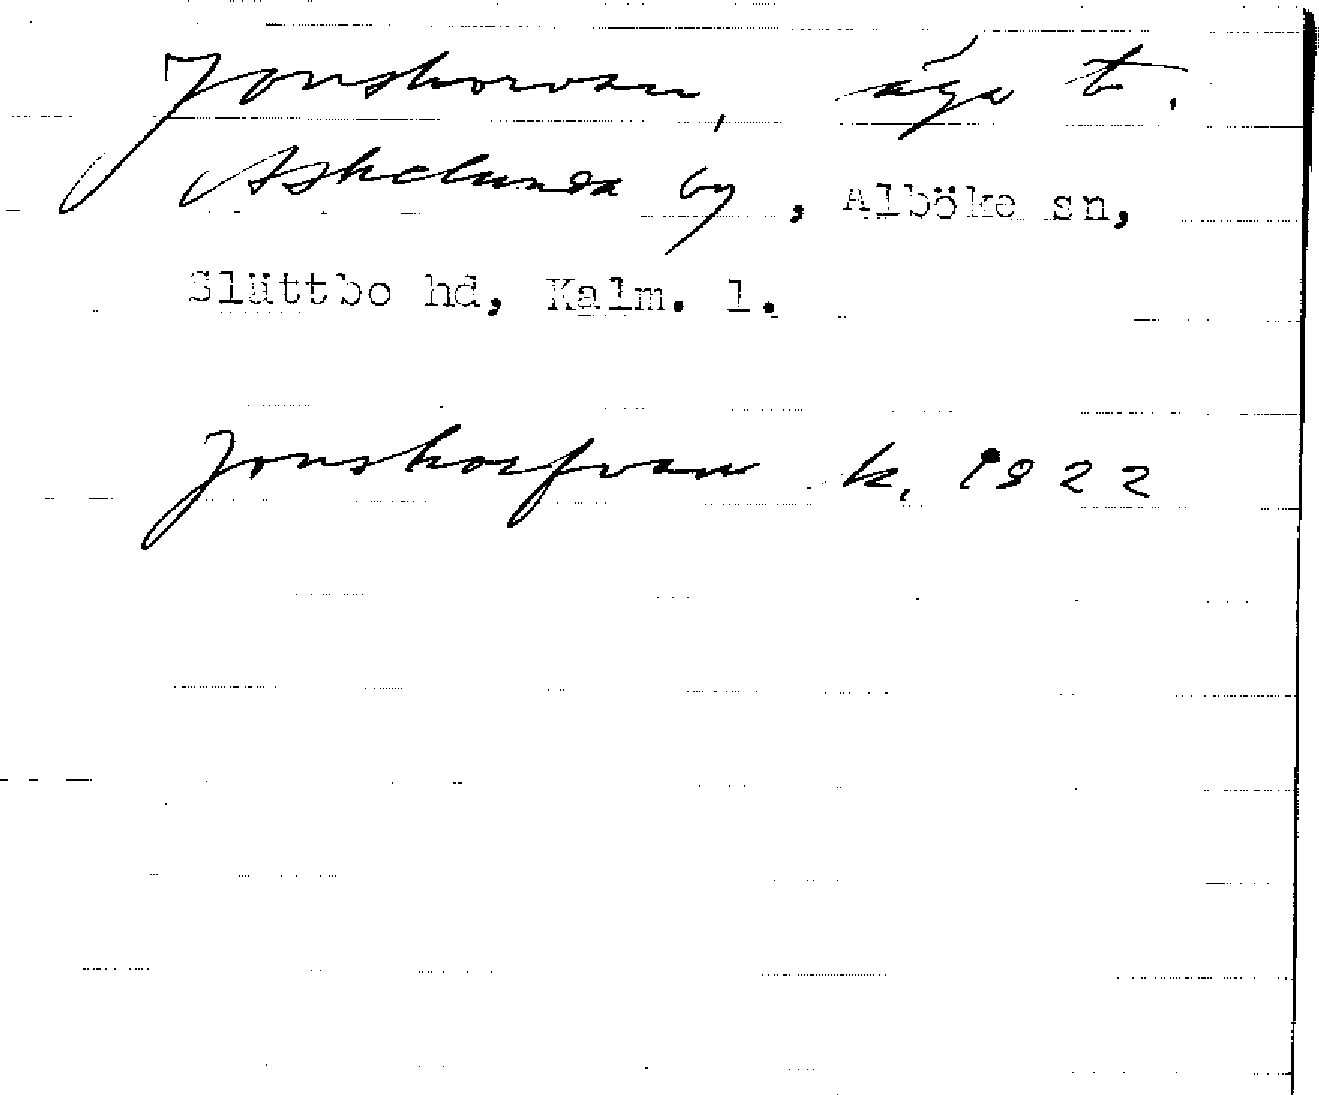 Jonskorvan, äga t.
Askelunda by, Alböke sn,
Slättbo hd, Kalm. l.
Jonskorfvan k. 1822